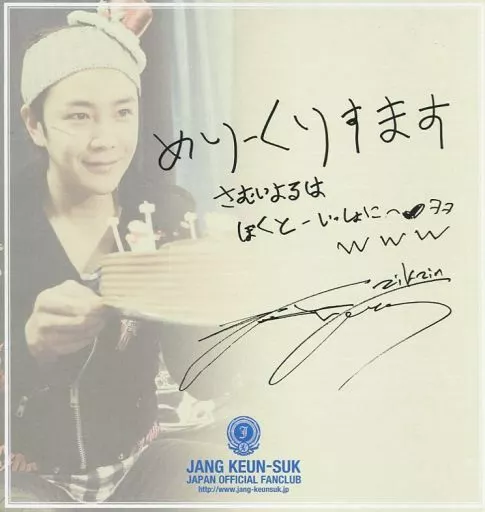 めりーくりすます
さむいよるは
ぼくとーいっしょに〜♥ㅋㅋ
w w w
zikzin
J
JANG KEUN-SUK
JAPAN OFFICIAL FANCLUB
http://www.jang-keunsuk.jp